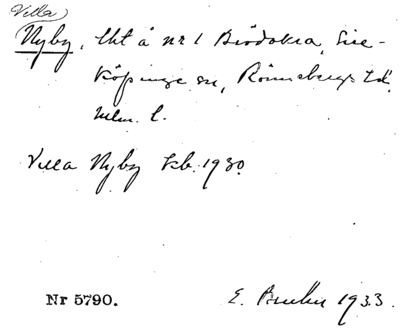 Villa
Nyby, lht å nr 1 Brödåkra, Sire-
köpinge sn, Rönnebergs hd,
Mlm. l.
Villa Nyby kb. 1930.
Nr 5790. E. 1933.